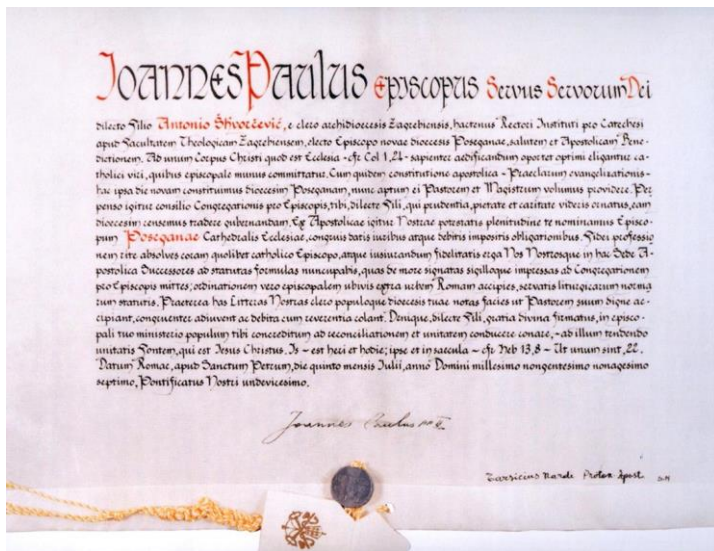 JOANNES PAULUS EPISCOPUS SERVUS SERVORUM DEI
dilecto Filio Antonio Škvorčević, e clero archidioecesis Zagrebiensis, hactenus Rectori Instituti pro Catechesi
apud Facultatem Theologicam Zagrebiensem, electo Episcopo novae dioecesis Poseganae, salutem et Apostolicam Bene-
dictionem. Ad unum Corpus Christi quod est Ecclesia - cfr Col 1, 24 - sapienter aedificandum oportet optimi eligantur ca-
tholici viri, quibus episcopale munus committatur. Cum quidem constitutione apostolica - Praeclarum evangelizationis -
hac ipsa die novam constituimus dioecesim Poseganam, nunc aptum ei Pastorem et Magistrum volumus providere. Per
penso igitur consilio Congregationis pro Episcopis, tibi, dilecte Fili, qui prudentia, pietate et caritate videris ornatus, eam
dioecesim censemus tradere gubernandam. Ex Apostolicae igitur Nostrae potestatis plenitudine te nominamus Episco-
pum Poseganae Cathedralis Ecclesiae, congruis datis iuribus atque debitis impositis obligationibus. Fidei professio
nem rite absolves coram quolibet catholico Episcopo, atque iusiurandum fidelitatis erga Nos Nostrosque in hac Sede A-
postolica Successores ad statutas formulas nuncupabis, quas de more signatas sigilloque impressas ad Congregationem
pro Episcopis mittes; ordinationem vero episcopalem ubivis extra urbem Romam accipies, servatis liturgicarum norma
rum statutis. Praeterea has Litteras Nostras clero populoque dioecesis tuae notas facies ut Pastorem suum digne ac-
cipiant, congruenter adiuvent ac debita cum reverentia colant. Denique, dilecte Fili, gratia divina firmatus, in episco-
pali tuo ministerio populum tibi concreditum ad reconciliationem et unitatem conducere conare, - ad illum tendendo
unitatis Fontem, qui est Jesus Christus. Is - est heri et hodie; ipse et in saecula - cfr Heb 13,8 - Ut unum sint, 22.
Datum Romae, apud Sanctum Petrum, die quinto mensis Iulii, anno Domini millesimo nongentesimo nonagesimo
septimo, Pontificatus Nostri undevicesimo.
Joannes Paulus PP. II
Tarsicius Nardi Proton. Apost.